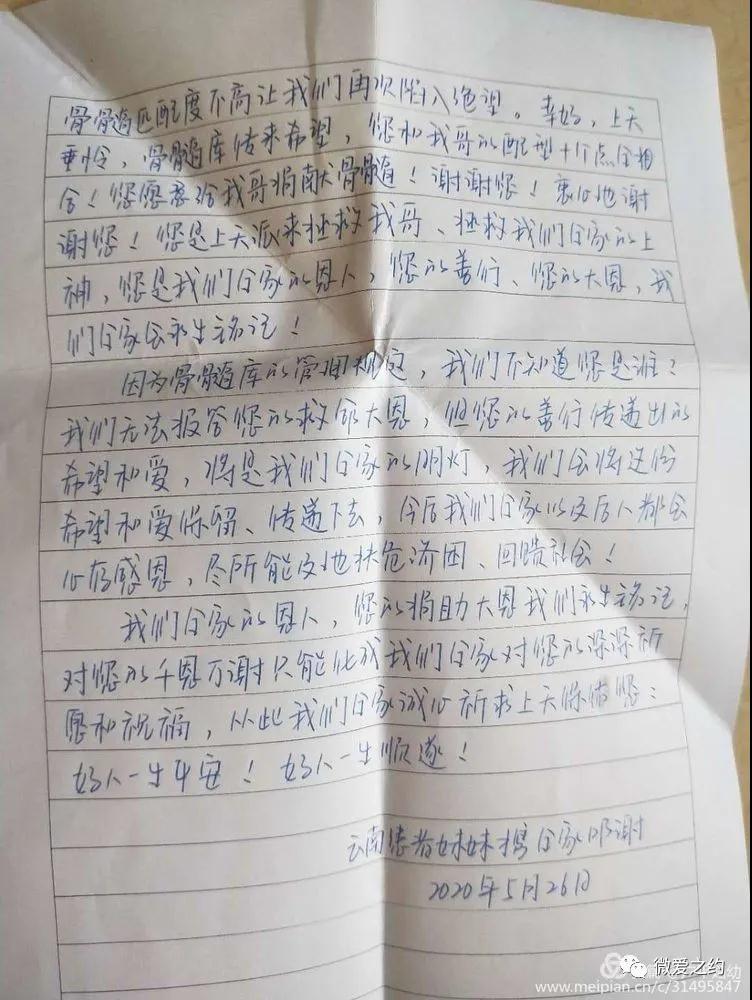 骨髓匹配度不高让我们再次陷入绝望。幸好，上天
垂怜，骨髓库传来希望，您和我哥的配型十个点全相
合！您愿意给我哥捐献骨髓！谢谢您！衷心地谢
谢您！您是上天派来拯救我哥、拯救我们全家的上
神，您是我们全家的恩人，您的善行、您的大恩，我
们全家会永生铭记！
因为骨髓库的管理规定，我们不知道您是谁？
我们无法报答您的救命大恩，但您的善行传递出的
希望和爱，将是我们全家的明灯，我们会将这份
希望和爱保留、传递下去，今后我们全家以及后人都会
心存感恩，尽所能及地扶危济困、回馈社会！
我们全家的恩人，您的捐助大恩我们永生铭记，
对您的千恩万谢只能化成我们全家对您的深深祈
愿和祝福，从此我们全家诚心祈求上天保佑您：
好人一生平安！好人一生顺遂！
云南患者妹妹携全家叩谢
2020年5月26日
微爱之约
幼
www.meipian.cn/c/31495847